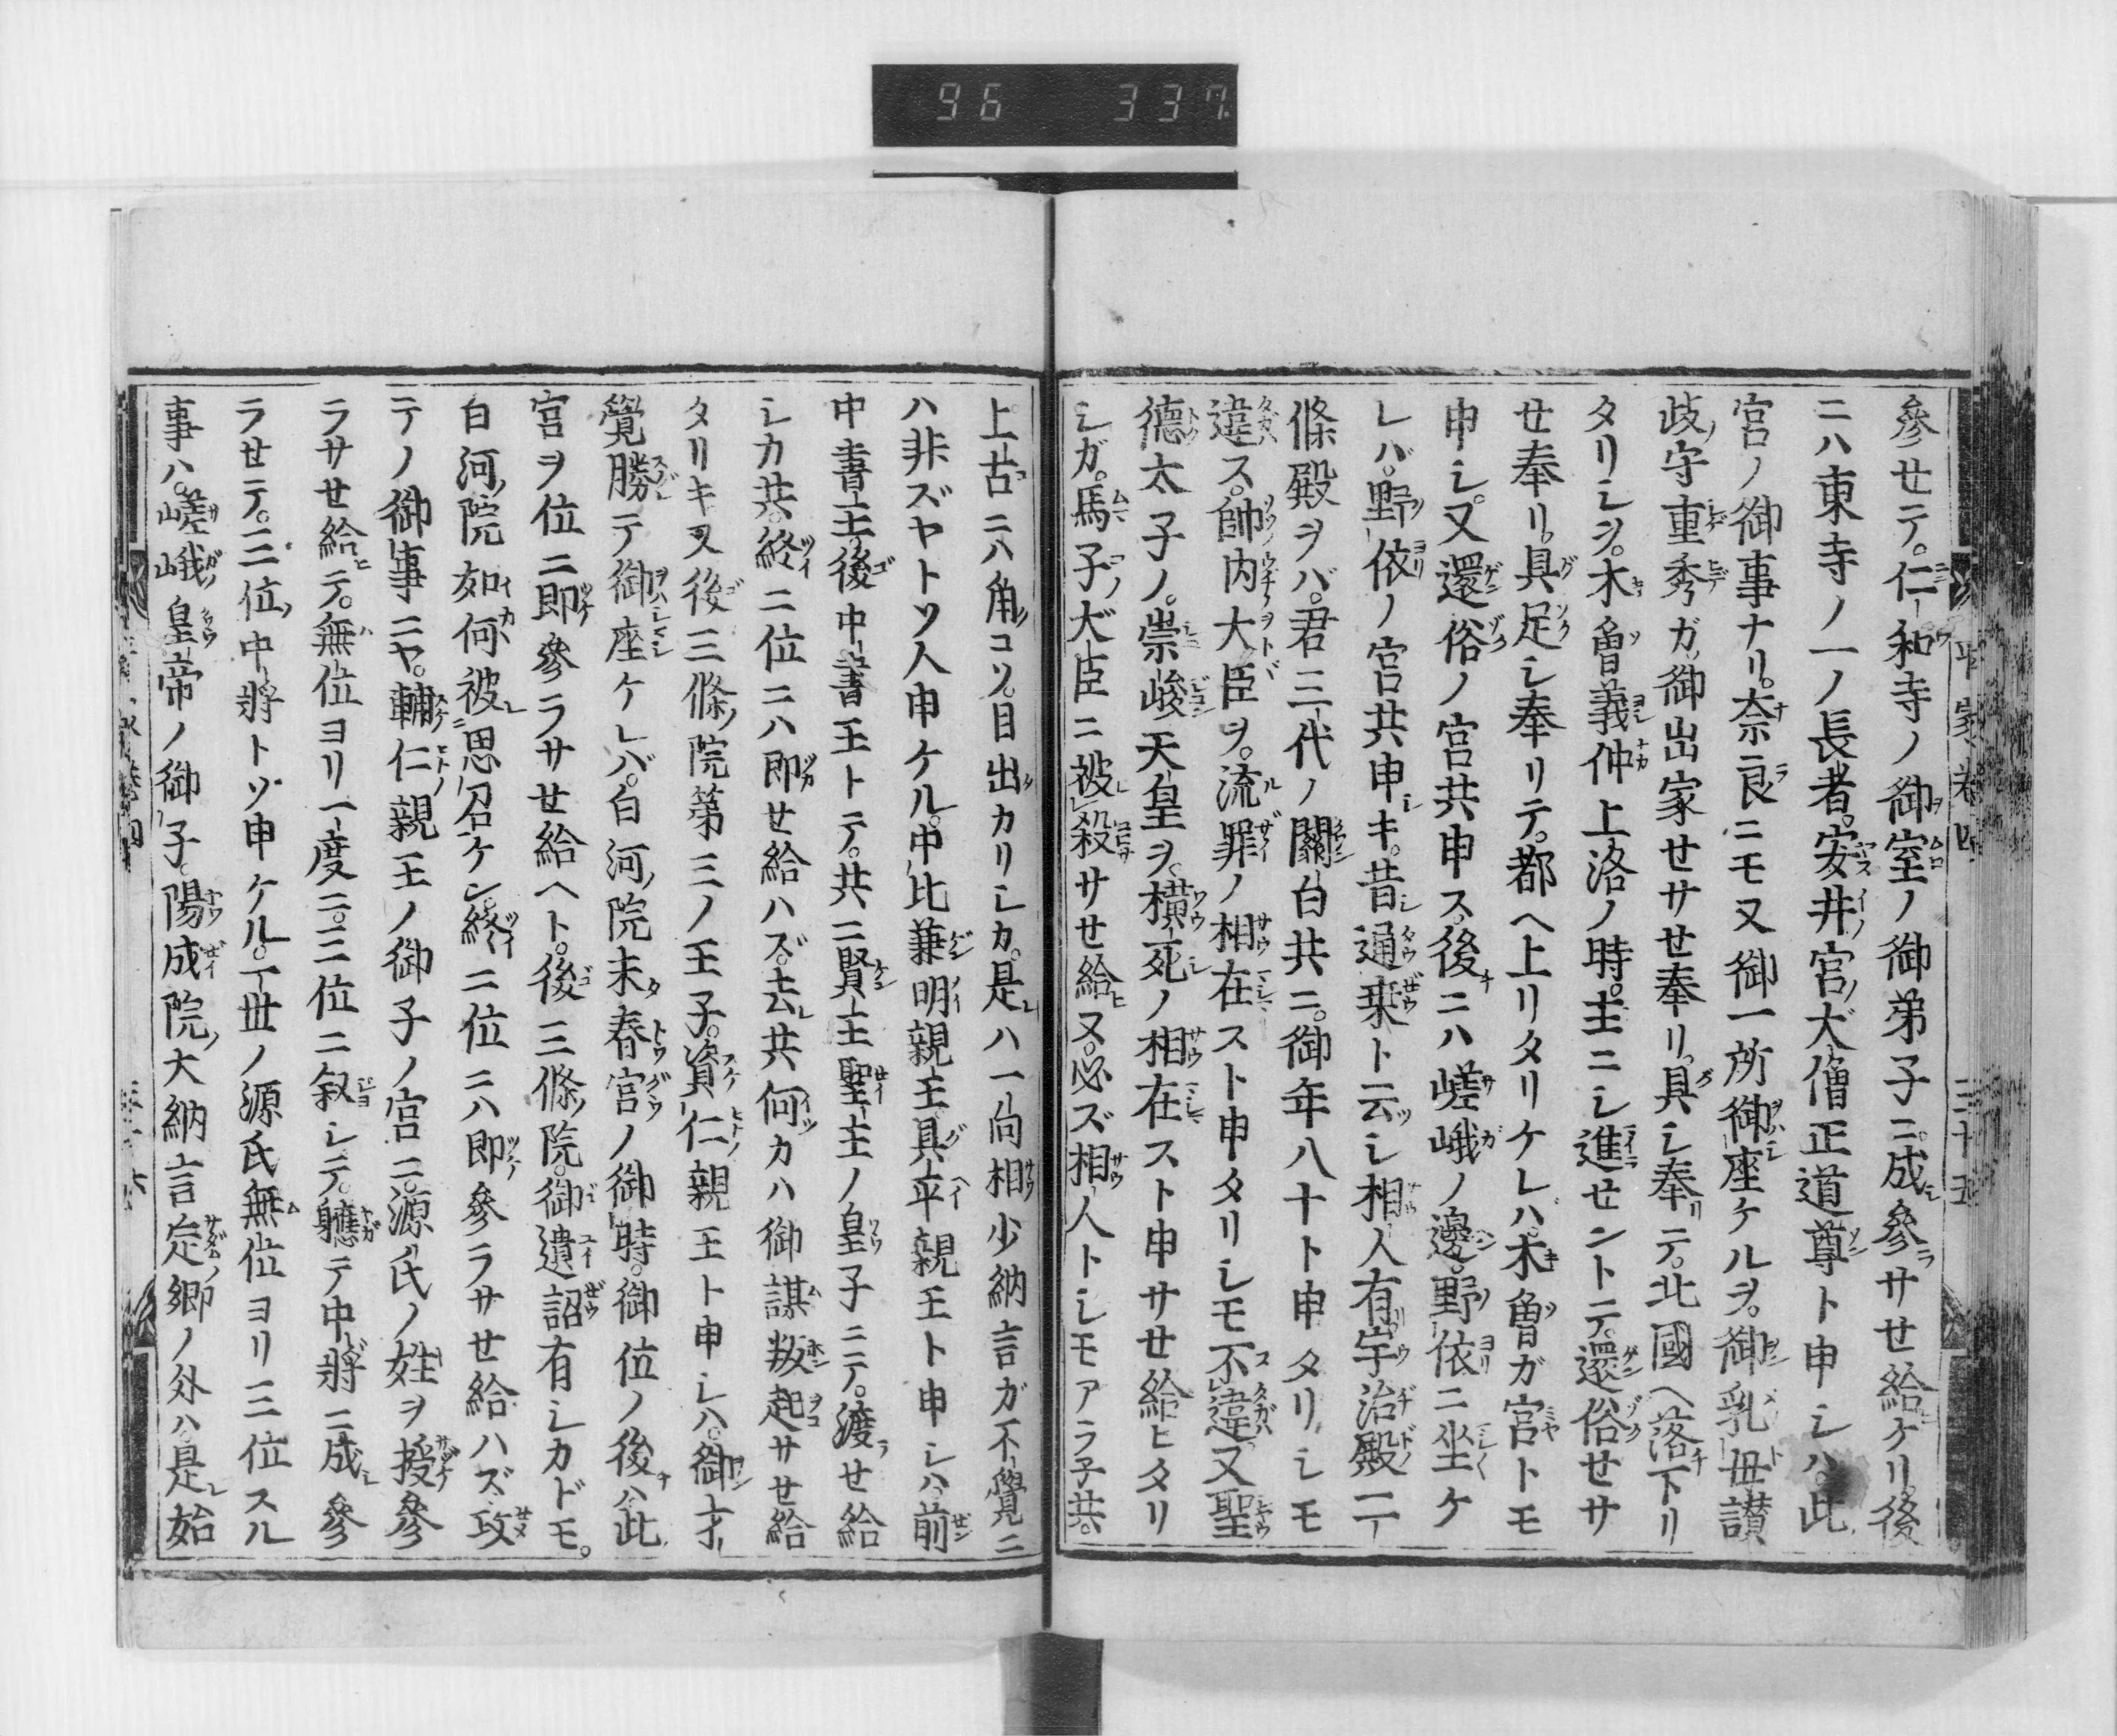 96 337
參セテ。仁和寺ノ御室ノ御弟子ニ。成參サセ給ケリ。後
ニハ東寺ノ一ノ長者。安井ノ宮ノ大僧正道尊ト申シハ。此
宮ノ御事ナリ。奈良ニモ又御一所御座ケルヲ。御乳母讃
岐ノ守重秀ガ御出家セサセ奉リ。具シ奉リテ。北國ヘ落下リ
タリシヲ。木曾義仲上洛ノ時。主ニシ進セントテ。還俗セサ
セ奉リ。具足シ奉リテ。都ヘ上リタリケレバ。木曾ガ宮トモ
申シ。又還俗ノ宮共申ス。後ニハ嵯峨ノ邊。野依ニ坐ケ
レバ。野依ノ宮共申キ。昔通乗ト云シ相人有。宇治殿二
條殿ヲバ。君三代ノ關白共ニ。御年八十ト申タリシモ
違ス。帥内大臣ヲ。流罪ノ相在スト申タリシモ不違。又聖
德太子ノ。崇峻天皇ヲ。横死ノ相在スト申サセ給ヒタリ
シガ。馬子ノ大臣ニ被殺サセ給ヌ。必ズ相人トシモアラ子共。
上古ニハ角コソ。目出カリシカ。是ハ一向相少納言ガ不覺ニ
ハ非ズヤトソ人申ケル。中比兼明親王具平親王ト申シハ。前
中書王後中書王トテ。共ニ賢王聖主ノ皇子ニテ。渡セ給
シカ共。終ニ位ニハ即セ給ハズ。去共何カハ御謀叛起サセ給
タリキ又後三條ノ院第三ノ王子。資仁親王ト申シハ。御才
覺勝テ御座ケレバ。白河ノ院未春宮ノ御時。御位ノ後ハ此
宮ヲ位ニ即參ラサセ給ヘト。後三條ノ院。御遺詔有シカドモ。
白河ノ院如何被思召ケン。終ニ位ニハ即參ラサセ給ハズ。攻
テノ御事ニヤ。輔仁親王ノ御子ノ宮ニ。源氏ノ姓ヲ授參
ラサセ給テ。無位ヨリ一度ニ。三位ニ叙シテ。軈テ中將ニ成參
ラセテ。三位ノ中將トソ申ケル。一世ノ源氏無位ヨリ三位スル
事ハ。嵯峨ノ皇帝ノ御子。陽成院ノ大納言定ノ卿ノ外ハ。是始